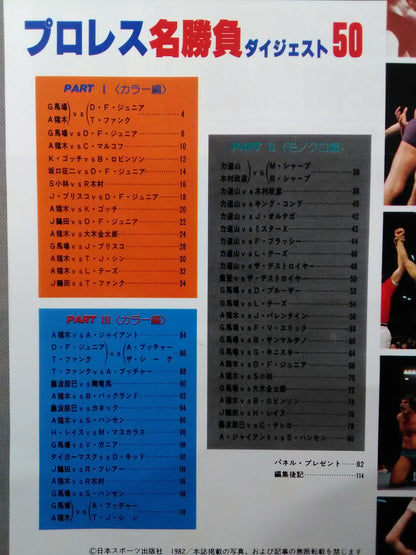 プロレス名勝負ダイジェスト50
PART Ⅰ〈カラー編〉
G馬場 A猪木 vs D・F・ジュニア T・ファンク……4
G馬場vsD・F・ジュニア……8
A猪木vsC・マルコフ……10
K・ゴッチvsB・ロビンソン……12
坂口征二vsD・F・ジュニア……14
S小林vsR木村……16
J・ブリスコvsD・F・ジュニア……18
A猪木vsK・ゴッチ……20
J鶴田vsD・F・ジュニア……22
A猪木vs大木金太郎……24
G馬場vsJ・ブリスコ……28
A猪木vsT・J・シン……30
A猪木vsL・テーズ……32
J鶴田vsT・ファンク……34
PART Ⅱ〈モノクロ編〉
力道山 木村政彦 vs M・シャープ B・シャープ……36
力道山vs木村政彦……38
力道山vsキング・コング……40
力道山vsJ・オルテガ……42
力道山vsミスターX……43
力道山vsF・ブラッシー……44
力道山vsL・テーズ……46
力道山vsザ・デストロイヤー……48
豊登vsザ・デストロイヤー……50
G馬場vsD・ブルーザー……52
G馬場vsL・テーズ……54
A猪木vsJ・バレンタイン……56
G馬場vsF・V・エリック……58
G馬場vsB・サンマルチノ……60
G馬場vsG・キニスキー
A猪木vsD・F・ジュニア
A猪木vsS小林……70
G馬場vs大木金太郎……72
A猪木vsB・ロビンソン……74
J鶴田vsH・レイス……76
藤波辰巳vsC・ゲレロ……78
A・ジャイアントvsS・ハンセン……80
PART Ⅲ〈カラー編〉
A猪木vsA・ジャイアント……84
D・F・ジュニア T・ファンク vs A・ブッチャー ザ・シーク……86
T・ファンクvsA・ブッチャー……88
藤波辰巳vs剛竜馬……90
A猪木vsB・バックランド……92
藤波辰巳vsカネック……94
A猪木vsS・ハンセン……96
H・レイスvsM・マスカラス……98
G馬場vsV・ガニア……100
タイガーマスクvsD・キッド
J鶴田vsR・フレアー
A猪木vsR木村
G馬場vsS・ハンセン
G馬場 A猪木 vs A・ブッチャー T・J・シン
パネル・プレゼント……82
編集後記……114
©日本スポーツ出版社 1982/本誌掲載の写真、および記事の無断転載を禁じます